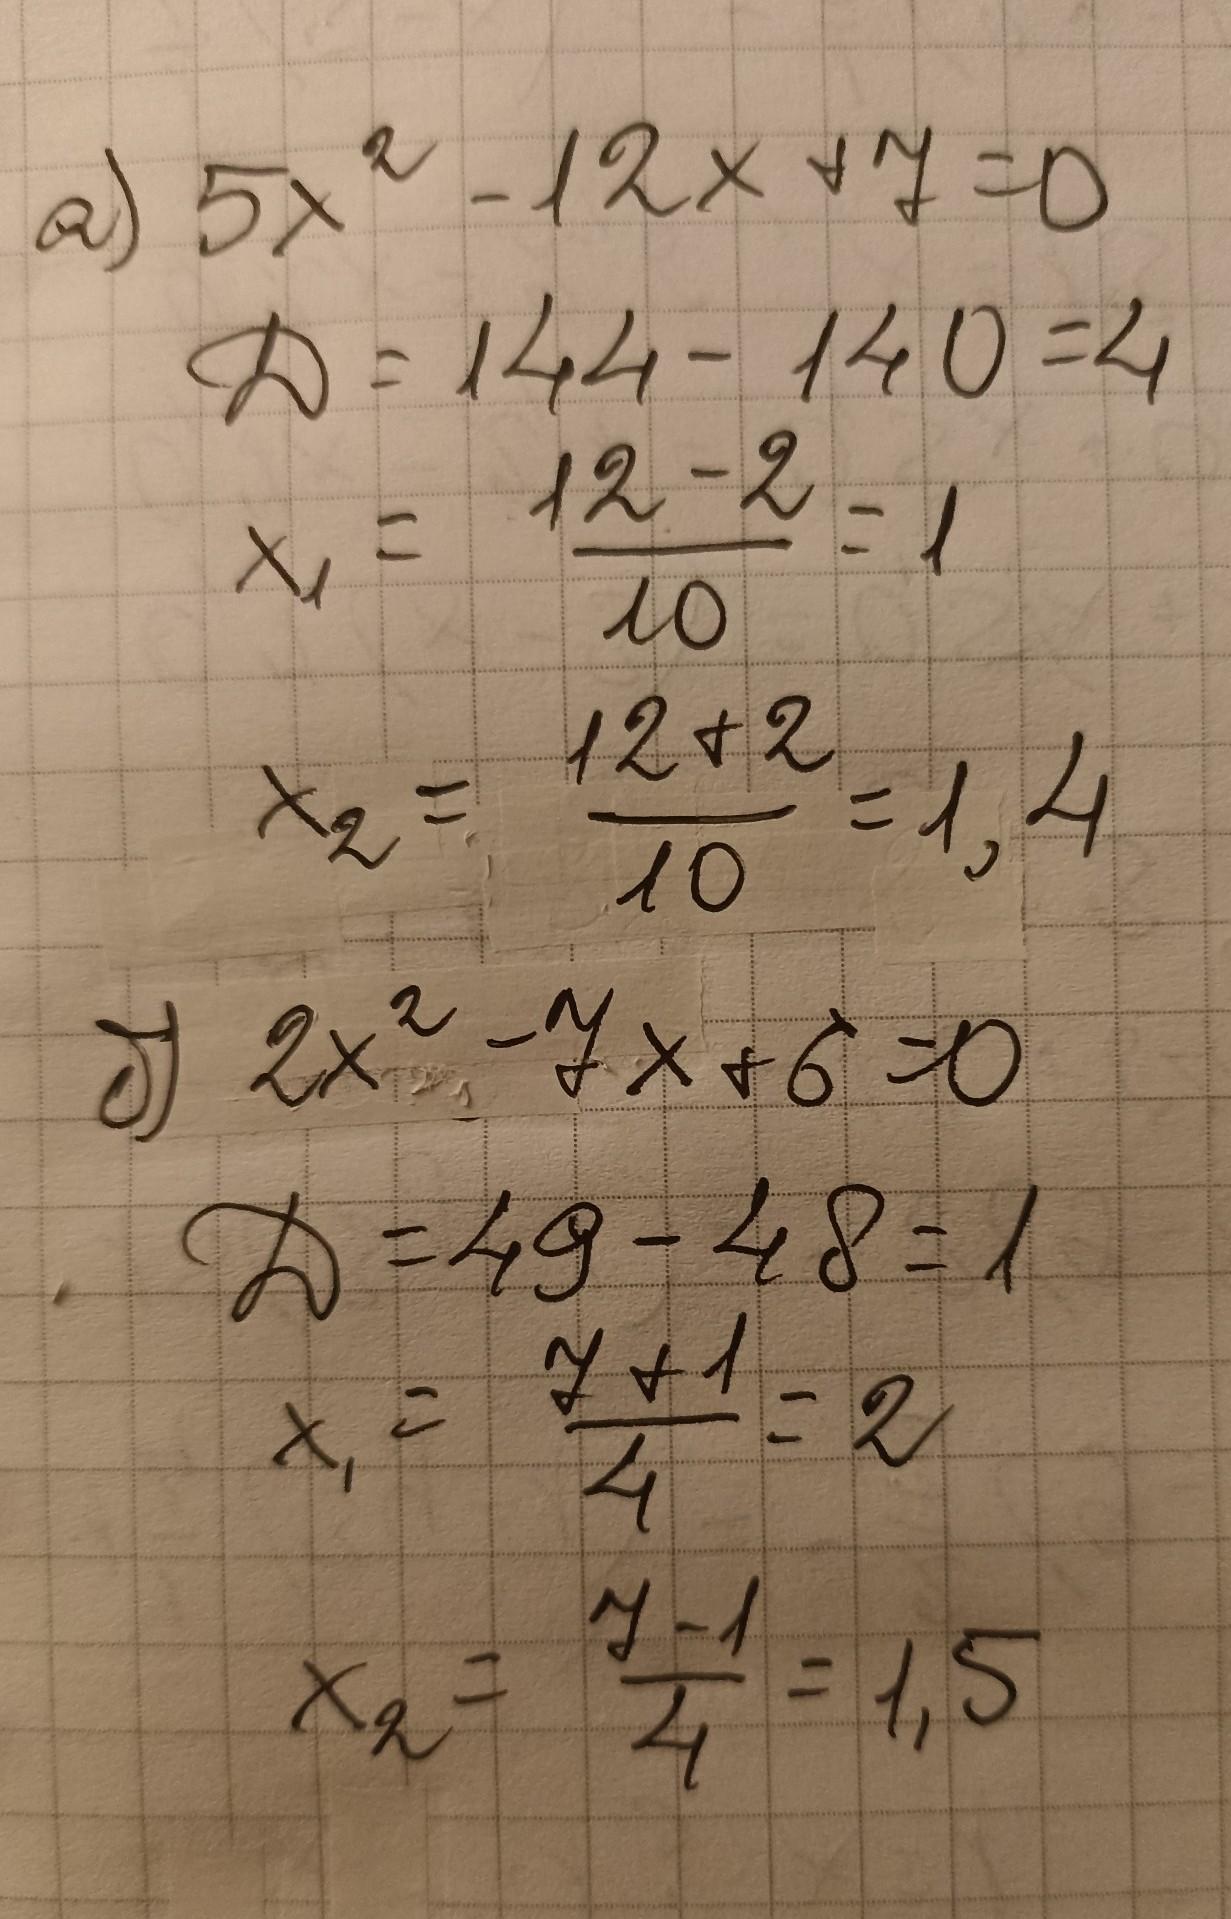 а) 5x² - 12x + 7 = 0
D = 144 - 140 = 4
x₁ = (12 - 2)/10 = 1
x₂ = (12 + 2)/10 = 1,4
б) 2x² - 7x + 6 = 0
D = 49 - 48 = 1
x₁ = (7 + 1)/4 = 2
x₂ = (7 - 1)/4 = 1,5